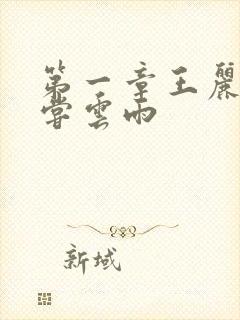 第一章王麗
嘗雲雨
新域